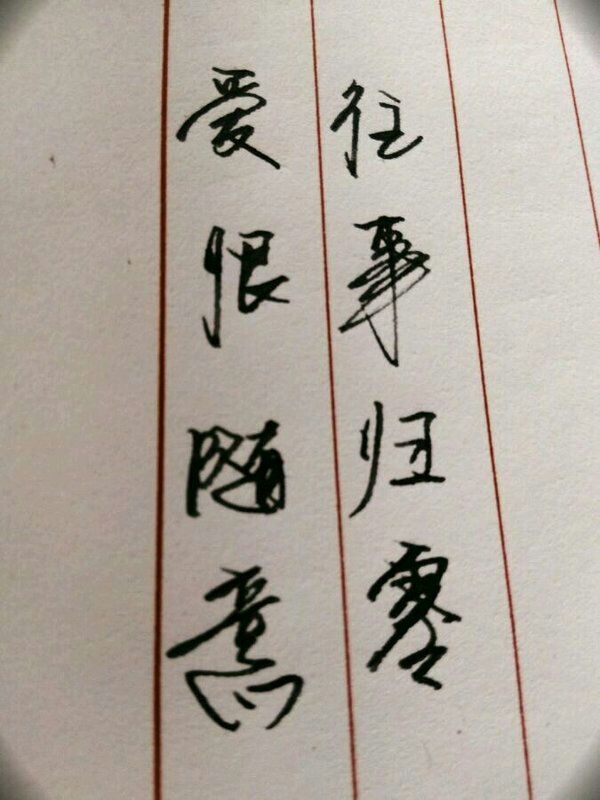 往事归零
爱恨随意